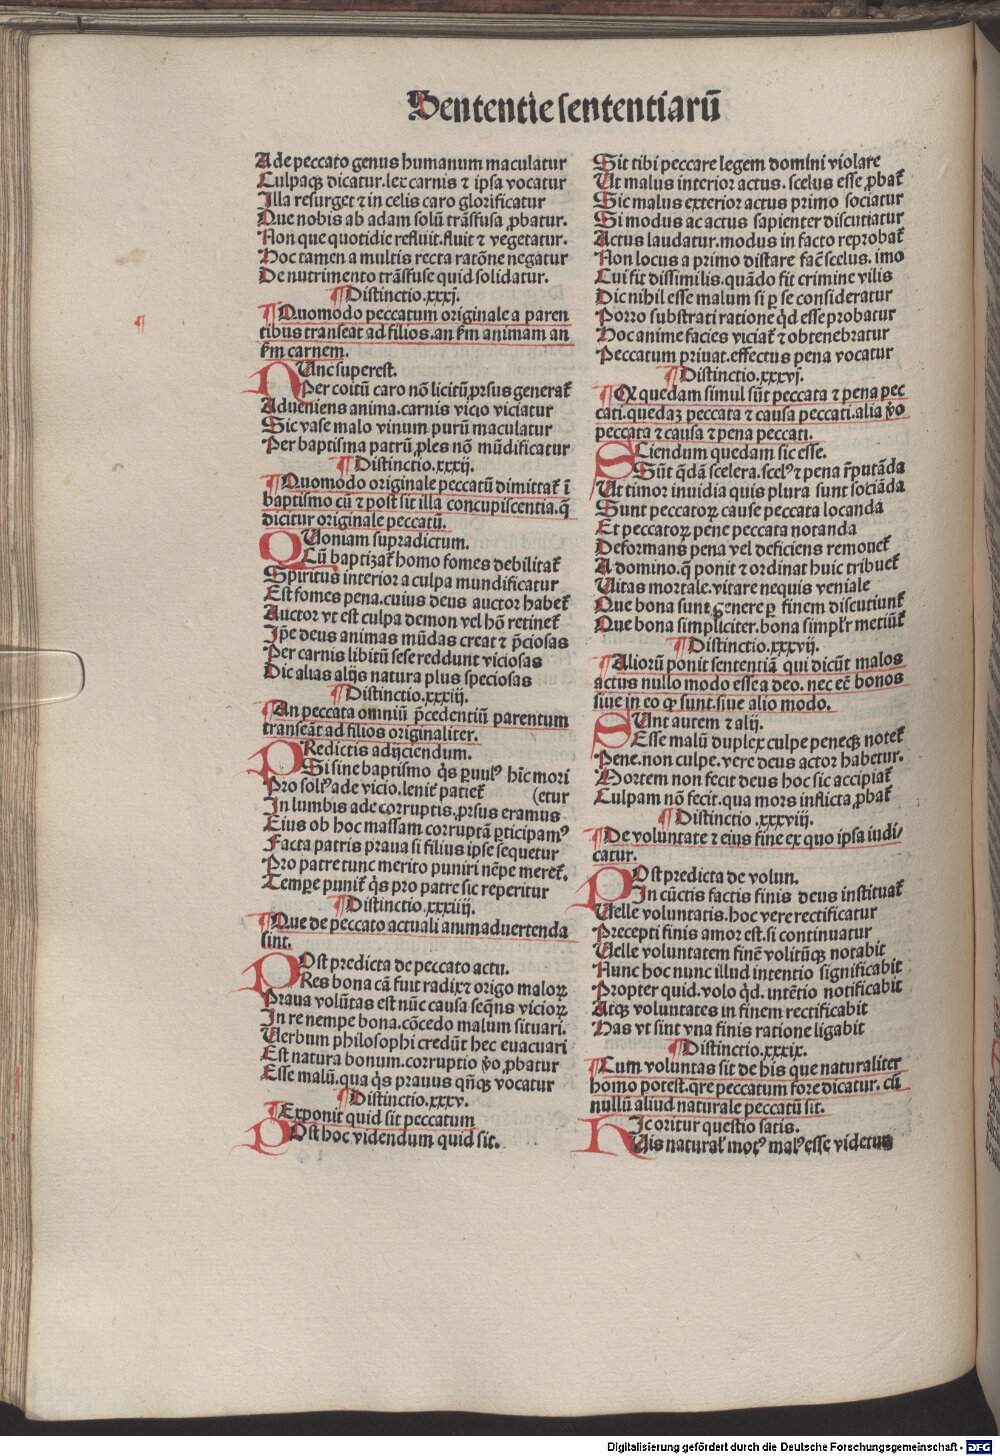 Sententie sententiarū
Ade peccato genus humanum maculatur
Culpaqꝫ dicatur.lex carnis ⁊ ipsa vocatur
Illa resurget ⁊ in celis caro glorificatur
Que nobis ab adam solū trāsfusa ꝓbatur.
Non que quotidie refluit.fluit ⁊ vegetatur.
Hoc tamen a multis recta ratōne negatur
De nutrimento trāsfuse quid solidatur.
¶Distinctio.xxxj.
¶Quomodo peccatum originale a paren
tibus transeat ad filios.an ẜm animam an
ẜm carnem.
NUnc superest.
Per coitū caro nō licitū ꝓrsus generat᷑
Adueniens anima.carnis vicio viciatur
Sic vase malo vinum purū maculatur
Per baptisma patrū ꝓles nō mūdificatur
¶Distinctio.xxxij.
¶Quomodo originale peccatū dimittat᷑ ī
baptismo cū ⁊ post sit illa concupiscentia.q̄
dicitur originale peccatū.
QUoniam supradictum.
Cū baptizat᷑ homo fomes debilitat᷑
Spiritus interior a culpa mundificatur
Est fomes pena.cuius deus auctor habet᷑
Auctor vt est culpa demon vel hō retinet᷑
Ip̄e deus animas mūdas creat ⁊ p̄ciosas
Per carnis libitū sese reddunt viciosas
Dic alias alijs natura plus speciosas
¶Distinctio.xxxiij.
¶An peccata omniū p̄cedentiū parentum
transeāt ad filios originaliter.
PRedictis adijciendum.
Si sine baptismo q̄s ꝑuulꝰ hīc mori
Pro solꝰ ade vicio.lenit᷑ patiet᷑ (etur
In lumbis ade corruptis ꝓrsus eramus
Eius ob hoc massam corruptā ꝑticipamꝰ
Facta patris praua si filius ipse sequetur
Pro patre tunc merito puniri nēpe meret᷑.
Tempꝑe punit᷑ q̄s pro patre sic reperitur
¶Distinctio.xxxiiij.
¶Que de peccato actuali animaduertenda
sint.
POst predicta de peccato actu.
Res bona cā fuit radix ⁊ origo maloꝝ
Praua volūtas est nūc causa seq̄ns vicioꝝ
In re nempe bona.cōcedo malum situari.
Uerbum philosophi credūt hec euacuari
Est natura bonum.corruptio ṽo ꝓbatur
Esse malū.qua q̄s prauus qn̄qꝫ vocatur
¶Distinctio.xxxv.
¶Exponit quid sit peccatum
POst hoc videndum quid sit.
Sit tibi peccare legem domini violare
Ut malus interior actus.scelus esse ꝓbat᷑
Sic malus exterior actus primo sociatur
Si modus ac actus sapienter discutiatur
Actus laudatur.modus in facto reprobat᷑
Non locus a primo distare facit scelus.imo
Cui fit dissimilis.quādo fit crimine vilis
Dic nihil esse malum si ꝑ se consideratur
Porro substrati ratione q̄d esse probatur
Hoc anime facies viciat᷑ ⁊ obtenebratur
Peccatum priuat.effectus pena vocatur
¶Distinctio.xxxvj.
¶Qꝫ quedam simul sūt peccata ⁊ pena pec
cati.quedaꝫ peccata ⁊ causa peccati.alia ṽo
peccata ⁊ causa ⁊ pena peccati.
SCiendum quedam sic esse.
Sūt q̄dā scelera.scelꝰ ⁊ pena r̄putāda
Ut timor inuidia quis plura sunt sociāda
Sunt peccatoꝝ cause peccata locanda
Et peccatoꝝ pene peccata notanda
Deformans pena vel deficiens remouet᷑
A domino.q̄ ponit ⁊ ordinat huic tribuet᷑
Uitas mortale.vitare nequis veniale
Que bona sunt genere ꝑ finem discutiunt᷑
Que bona simpliciter.bona simpl'r metiūt᷑
¶Distinctio.xxxvij.
¶Aliorū ponit sententiā qui dicūt malos
actus nullo modo esse a deo.nec ec̄ bonos
siue in eo qꝫ sunt.siue alio modo.
SUnt autem ⁊ alij.
Esse malū duplex culpe peneqꝫ notet᷑
Pene.non culpe.vere deus actor habetur.
Mortem non fecit deus hoc sic accipiat᷑
Culpam nō fecit.qua mors inflicta ꝓbat᷑
¶Distinctio .xxxviij.
¶De voluntate ⁊ eius fine ex quo ipsa iudi/
catur.
POst predicta de volun.
In cūctis factis finis deus instituat᷑
Uelle voluntatis.hoc vere rectificatur
Precepti finis amor est.si continuatur
Uelle voluntatem finē volitūqꝫ notabit
Nunc hoc nunc illud intentio significabit
Propter quid.volo q̄d.intētio notificabit
Atqꝫ voluntates in finem rectificabit
Has vt sint vna finis ratione ligabit
¶Distinctio.xxxix.
¶Cum voluntas sit de his que naturaliter
homo potest.qre peccatum fore dicatur. cū
nullū aliud naturale peccatū sit.
HIc oritur questio satis.
Uis natural' motꝰ malꝰ esse videtur
¶
Digitalisierung gefördert durch die Deutsche Forschungsgemeinschaft - DFG